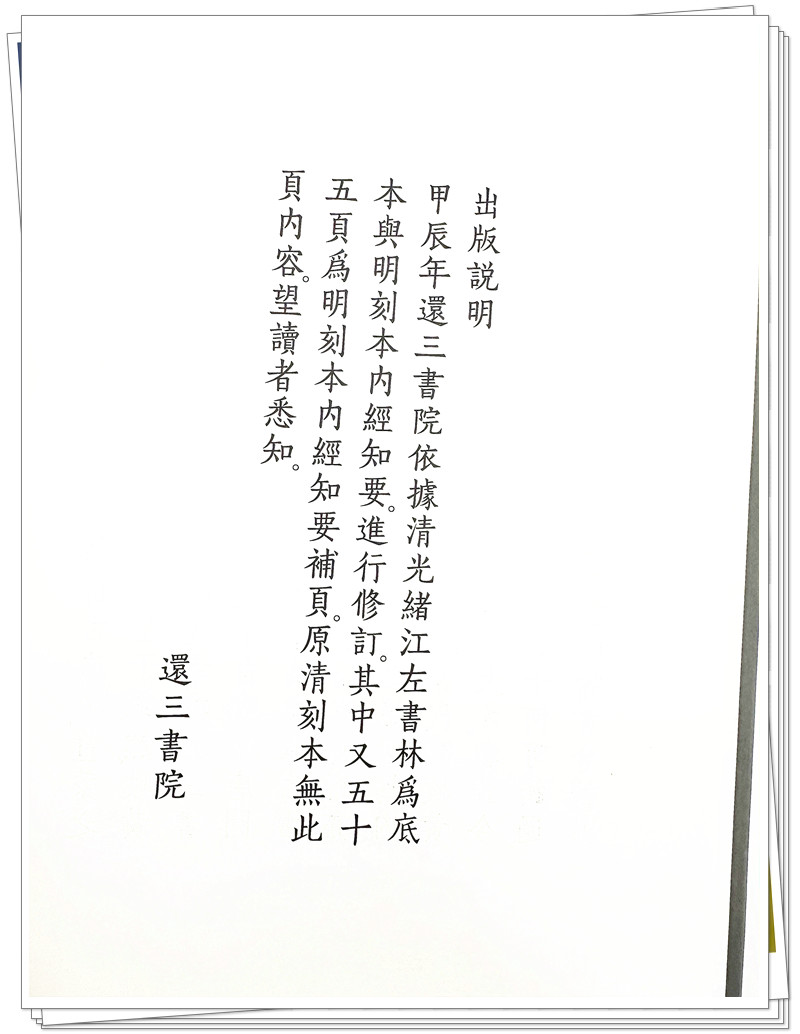 出版説明
甲辰年還三書院依據清光緒江左書林爲底
本與明刻本内經知要。進行修訂。其中又五十
五頁爲明刻本内經知要補頁。原清刻本無此
頁内容。望讀者悉知。
還三書院